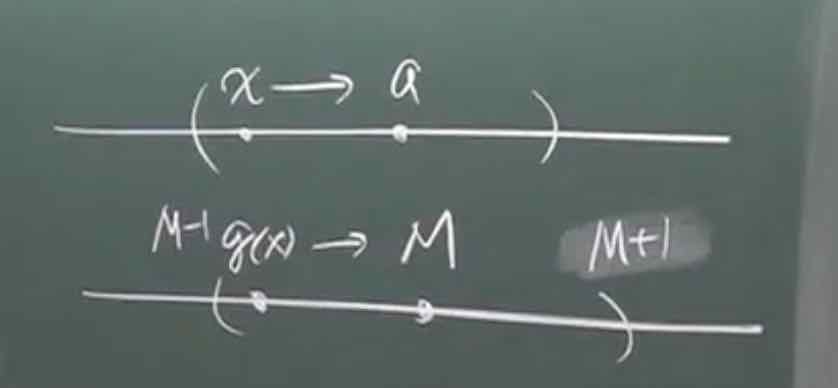 x → a
M-1 g(x) → M M+1